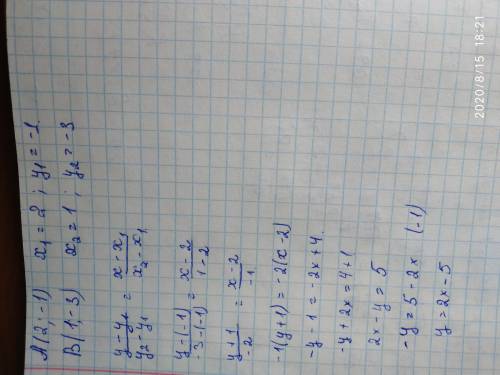 A(2; -1) x₁ = 2 ; y₁ = -1
B(1; -3) x₂ = 1 ; y₂ = -3
(y - y₁)/(y₂ - y₁) = (x - x₁)/(x₂ - x₁)
(y - (-1))/(-3 - (-1)) = (x - 2)/(1 - 2)
(y + 1)/(-2) = (x - 2)/(-1)
-1(y + 1) = -2(x - 2)
-y - 1 = -2x + 4
-y + 2x = 4 + 1
2x - y = 5
-y = 5 - 2x (-1)
y = 2x - 5
2020/8/15 18:21